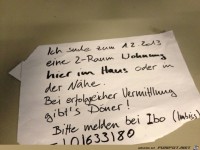 Ich suche zum 1.2.2013
eine 2-Raum Wohnung
hier im Haus oder in
der Nähe.
Bei erfolgreicher Vermittlung
gibt's Döner!
Bitte melden bei Ibo (Imbiss)
01633180